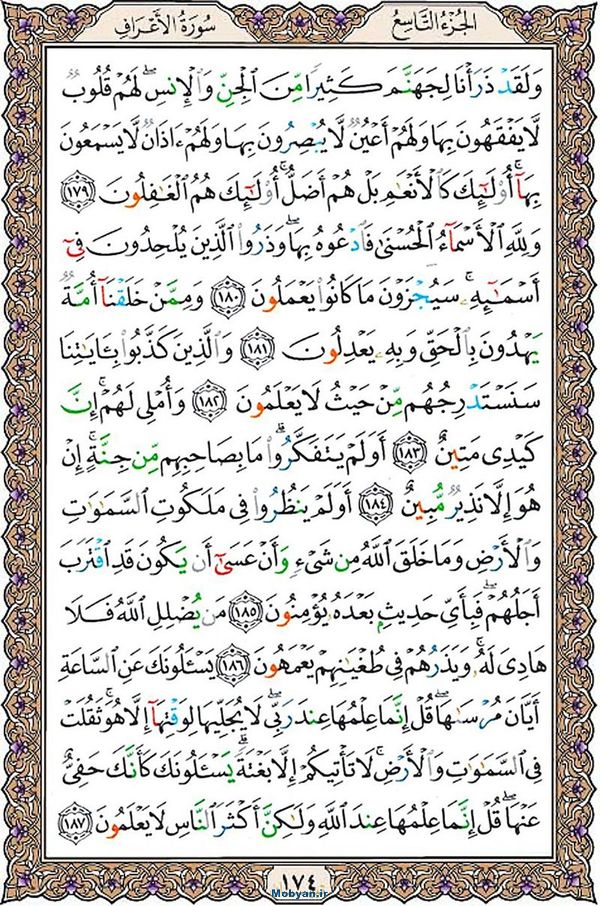 الجُزْءُ التَّاسِعُ
سُورَةُ الأَعْرَافِ
وَلَقَدْ ذَرَأْنَا لِجَهَنَّمَ كَثِيرًا مِّنَ ٱلْجِنِّ وَٱلْإِنسِ ۖ لَهُمْ قُلُوبٌ
لَّا يَفْقَهُونَ بِهَا وَلَهُمْ أَعْيُنٌ لَّا يُبْصِرُونَ بِهَا وَلَهُمْ ءَاذَانٌ لَّا يَسْمَعُونَ
بِهَآ ۚ أُو۟لَـٰٓئِكَ كَٱلْأَنْعَـٰمِ بَلْ هُمْ أَضَلُّ ۚ أُو۟لَـٰٓئِكَ هُمُ ٱلْغَـٰفِلُونَ ﴿١٧٩﴾
وَلِلَّهِ ٱلْأَسْمَآءُ ٱلْحُسْنَىٰ فَٱدْعُوهُ بِهَا ۖ وَذَرُوا۟ ٱلَّذِينَ يُلْحِدُونَ فِىٓ
أَسْمَـٰٓئِهِۦ ۚ سَيُجْزَوْنَ مَا كَانُوا۟ يَعْمَلُونَ ﴿١٨٠﴾ وَمِمَّنْ خَلَقْنَآ أُمَّةٌ
يَهْدُونَ بِٱلْحَقِّ وَبِهِۦ يَعْدِلُونَ ﴿١٨١﴾ وَٱلَّذِينَ كَذَّبُوا۟ بِـَٔايَـٰتِنَا
سَنَسْتَدْرِجُهُم مِّنْ حَيْثُ لَا يَعْلَمُونَ ﴿١٨٢﴾ وَأُمْلِى لَهُمْ ۚ إِنَّ
كَيْدِى مَتِينٌ ﴿١٨٣﴾ أَوَلَمْ يَتَفَكَّرُوا۟ ۗ مَا بِصَاحِبِهِم مِّن جِنَّةٍ ۚ إِنْ
هُوَ إِلَّا نَذِيرٌ مُّبِينٌ ﴿١٨٤﴾ أَوَلَمْ يَنظُرُوا۟ فِى مَلَكُوتِ ٱلسَّمَـٰوَٰتِ
وَٱلْأَرْضِ وَمَا خَلَقَ ٱللَّهُ مِن شَىْءٍ وَأَنْ عَسَىٰٓ أَن يَكُونَ قَدِ ٱقْتَرَبَ
أَجَلُهُمْ ۖ فَبِأَىِّ حَدِيثٍۭ بَعْدَهُۥ يُؤْمِنُونَ ﴿١٨٥﴾ مَن يُضْلِلِ ٱللَّهُ فَلَا
هَادِىَ لَهُۥ ۚ وَيَذَرُهُمْ فِى طُغْيَـٰنِهِمْ يَعْمَهُونَ ﴿١٨٦﴾ يَسْـَٔلُونَكَ عَنِ ٱلسَّاعَةِ
أَيَّانَ مُرْسَىٰهَا ۖ قُلْ إِنَّمَا عِلْمُهَا عِندَ رَبِّى ۖ لَا يُجَلِّيهَا لِوَقْتِهَآ إِلَّا هُوَ ۚ ثَقُلَتْ
فِى ٱلسَّمَـٰوَٰتِ وَٱلْأَرْضِ ۚ لَا تَأْتِيكُمْ إِلَّا بَغْتَةً ۗ يَسْـَٔلُونَكَ كَأَنَّكَ حَفِىٌّ
عَنْهَا ۖ قُلْ إِنَّمَا عِلْمُهَا عِندَ ٱللَّهِ وَلَـٰكِنَّ أَكْثَرَ ٱلنَّاسِ لَا يَعْلَمُونَ ﴿١٨٧﴾
١٧٤
Mobyan.ir